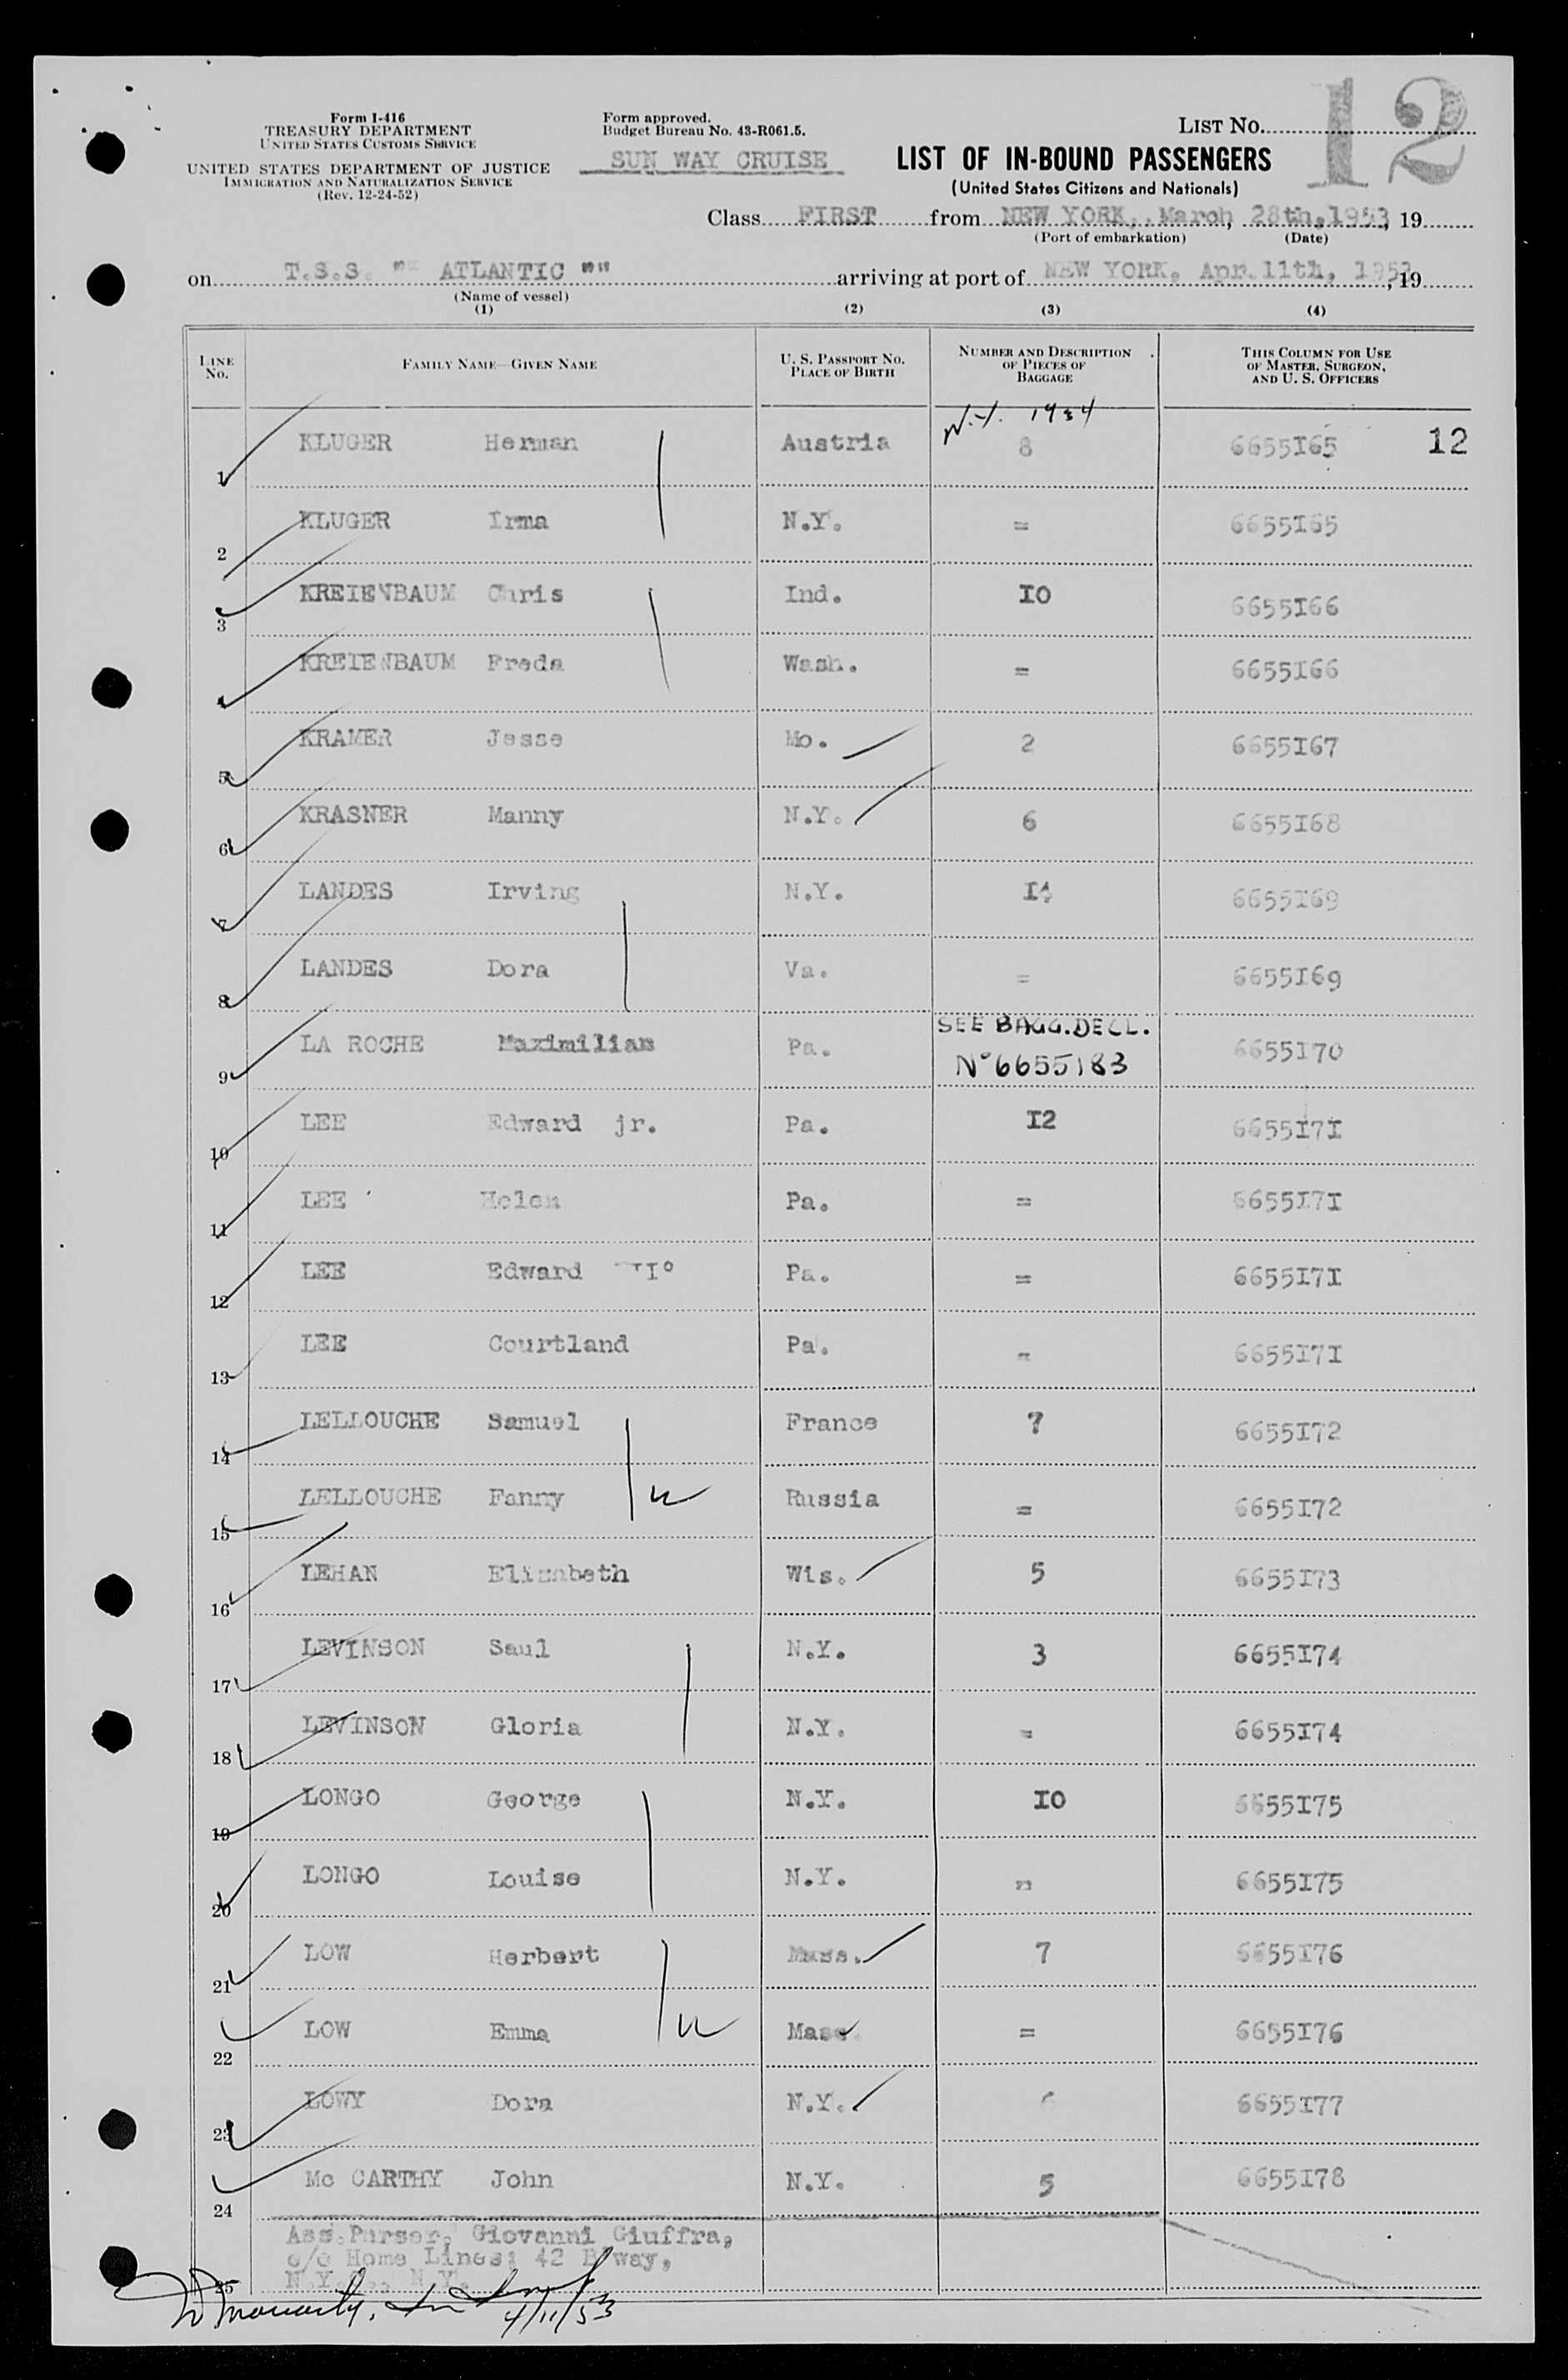 Form I-416
TREASURY DEPARTMENT
UNITED STATES CUSTOMS SERVICE
UNITED STATES DEPARTMENT OF JUSTICE
IMMIGRATION AND NATURALIZATION SERVICE
(Rev. 12-24-52)
Form approved.
Budget Bureau No. 43-R061.5.
SUN WAY CRUISE
LIST No. 12
LIST OF IN-BOUND PASSENGERS
(United States Citizens and Nationals)
Class FIRST from NEW YORK, March, 28th, 1953, 19
(Port of embarkation) (Date)
on T.S.S. "" ATLANTIC "" arriving at port of NEW YORK, Apr. 11th, 1953, 19
(Name of vessel)
(1) (2) (3) (4)
LINE No. FAMILY NAME—GIVEN NAME U. S. PASSPORT No. PLACE OF BIRTH NUMBER AND DESCRIPTION OF PIECES OF BAGGAGE THIS COLUMN FOR USE OF MASTER, SURGEON, AND U. S. OFFICERS
N.Y. 1934
1 KLUGER Herman Austria 8 6655I65 12
2 KLUGER Irma N.Y. = 6655I65
3 KREIENBAUM Chris Ind. IO 6655I66
4 KREIENBAUM Freda Wash. = 6655I66
5 KRAMER Jesse Mo. 2 6655I67
6 KRASNER Manny N.Y. 6 6655I68
7 LANDES Irving N.Y. I4 6655I69
8 LANDES Dora Va. = 6655I69
9 LA ROCHE Maximilian Pa. SEE BAGG. DECL. N° 6655183 6655I70
10 LEE Edward jr. Pa. I2 6655I7I
11 LEE Helen Pa. = 6655I7I
12 LEE Edward III° Pa. = 6655I7I
13 LEE Courtland Pa. = 6655I7I
14 LELLOUCHE Samuel France 7 6655I72
15 LELLOUCHE Fanny Russia = 6655I72
16 LEHAN Elizabeth Wis. 5 6655I73
17 LEVINSON Saul N.Y. 3 6655I74
18 LEVINSON Gloria N.Y. = 6655I74
19 LONGO George N.Y. IO 6655I75
20 LONGO Louise N.Y. = 6655I75
21 LOW Herbert Mass. 7 6655I76
22 LOW Emma Mass. = 6655I76
23 LOWY Dora N.Y. 6 6655I77
24 Mc CARTHY John N.Y. 5 6655I78
Ass.Purser, Giovanni Giuffra,
c/o Home Lines; 42 B'way,
25 N.Y., N.Y.
4/11/53